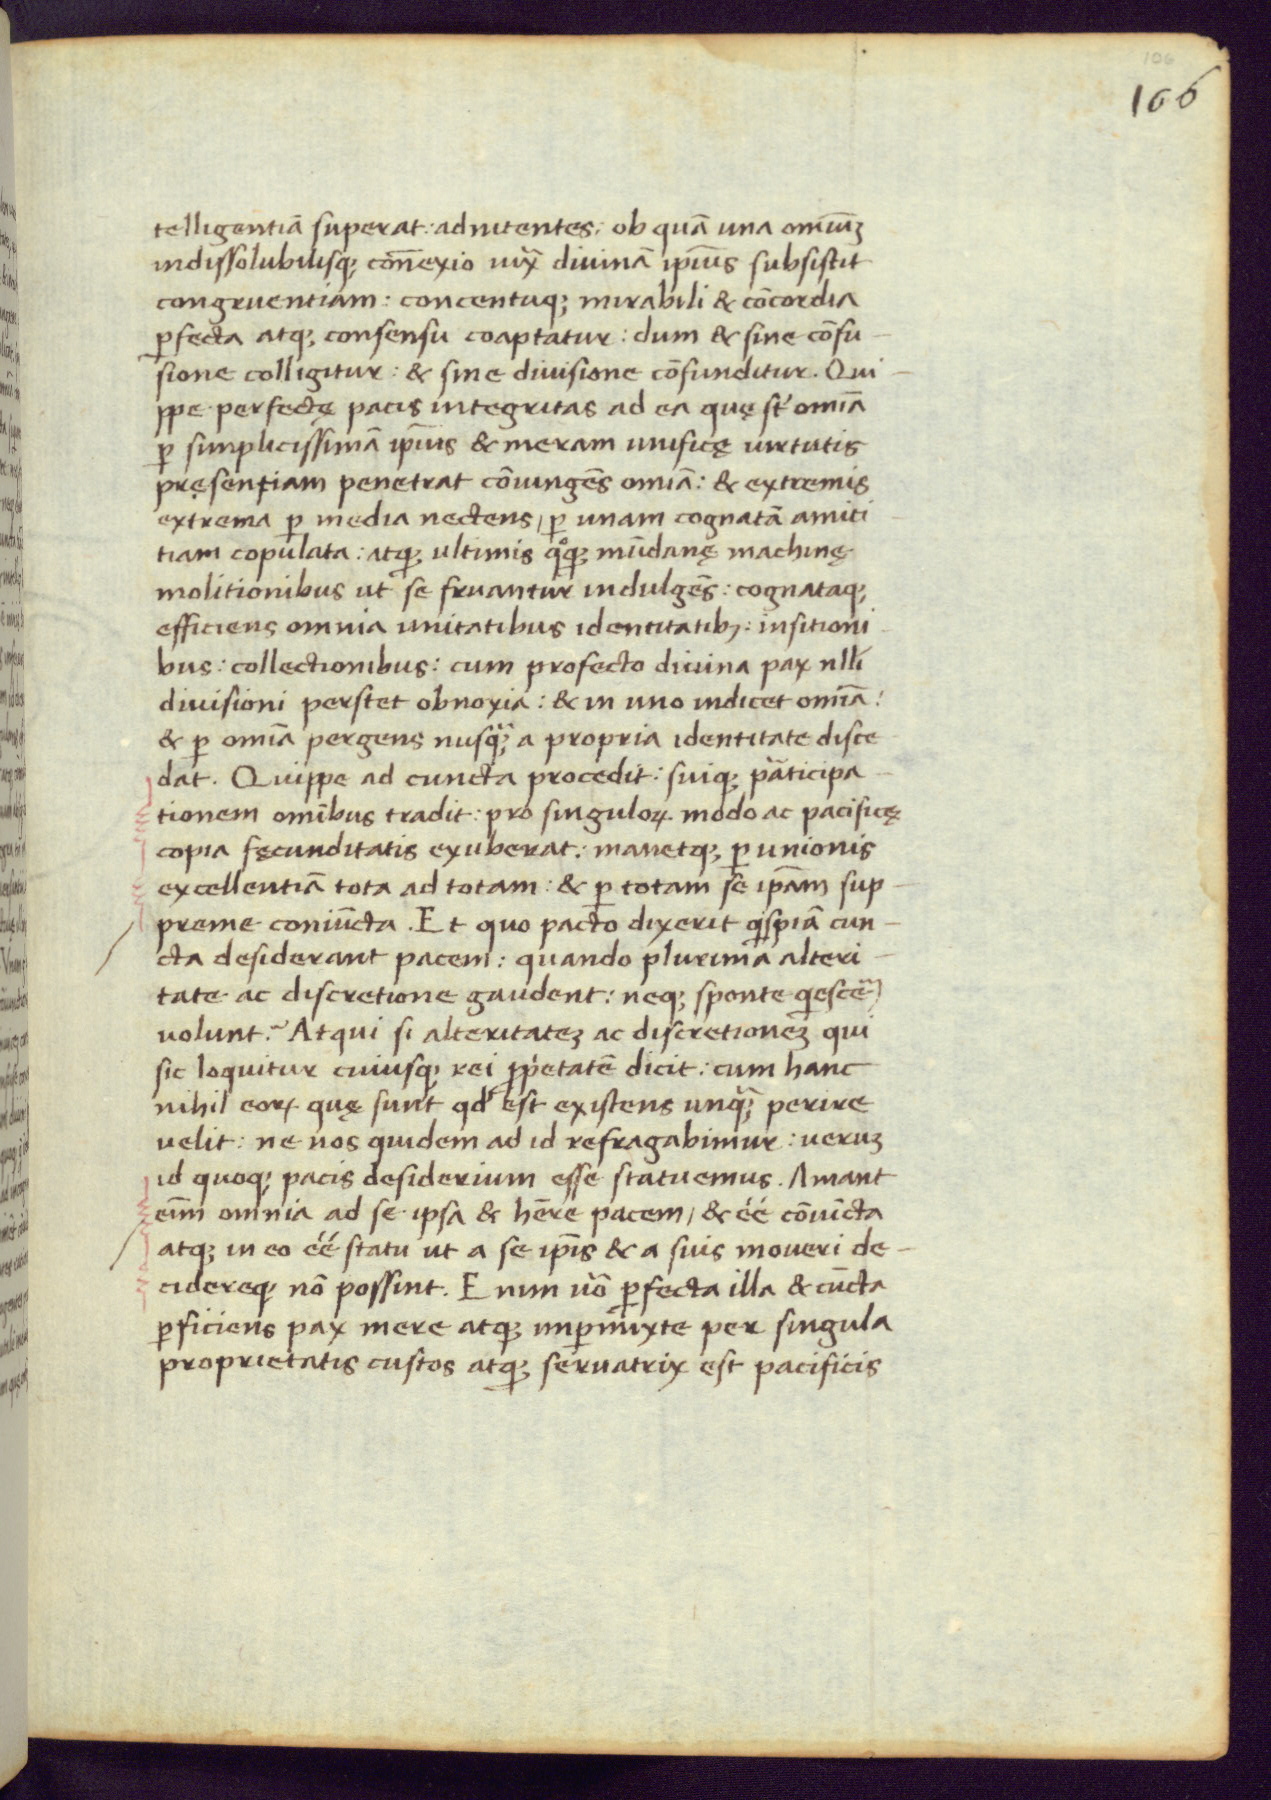 106
166
telligentiā superat: adnitentes: ob quā una omiūꝫ
indissolubilisqꝫ cōnexio iuxͣ divinā ip̄ius subsistit
congruentiam: concentuqꝫ mirabili & cōcordia
ꝑfecta atqꝫ consensu coaptatur: dum & sine cōfu-
sione colligitur: & sine divisione cōfunditur. Qui-
ppe perfectę pacis integritas ad ea quę st̄ omīa
ꝑ simplicissimā ip̄ius & meram unificę virtutis
pręsentiam penetrat cōiungēs omīa: & extremis
extrema ꝑ media nectens, ꝑ unam cognatā amici
tiam copulata: atqꝫ ultimis qͦqꝫ mūdanę machinę
molitionibus ut se fruantur indulgēs: cognataqꝫ
efficiens omnia unitatibus identitatibꝫ: insitioni
bus: collectionibus: cum profecto divina pax nlli
divisioni perstet obnoxia: & in uno indicet omīa:
& ꝑ omīa pergens nusqͣꝫ a propria identitate disce-
dat. Quippe ad cuncta procedit: suiqꝫ pͣticipa-
tionem omībus tradit: pro singuloꝝ modo ac pacificę
copia fęcunditatis exuberat: manetqꝫ ꝑ unionis
excellentiā tota ad totam: & ꝑ totam se ip̄am sup-
preme coniūcta. Et quo pacto dixerit qͥspiā cun-
cta desiderant pacem: quando plurima alteri-
tate ac discretione gaudent: neqꝫ sponte qͥescē
volunt? Atqui si alteritateꝫ ac discretioneꝫ qui
sic loquitur cuiusqꝫ rei ꝓpͥetatē dicit: cum hanc
nihil eoꝝ quę sunt qd̓ est existens unqͣꝫ perire
velit: ne nos quidem ad id refragabimur: veruꝫ
id quoqꝫ pacis desiderium esse statuemus. Amant
eīm omnia ad se ipsa & hēre pacem, & éé cōiūcta
atqꝫ in eo éé statu ut a se ip̄is & a suis moveri de-
cidereqꝫ nō possint. E nim ůo ꝑfecta illa & cūcta
ꝑficiens pax mere atqꝫ imꝑmixte per singula
proprietatis custos atqꝫ servatrix est pacificis